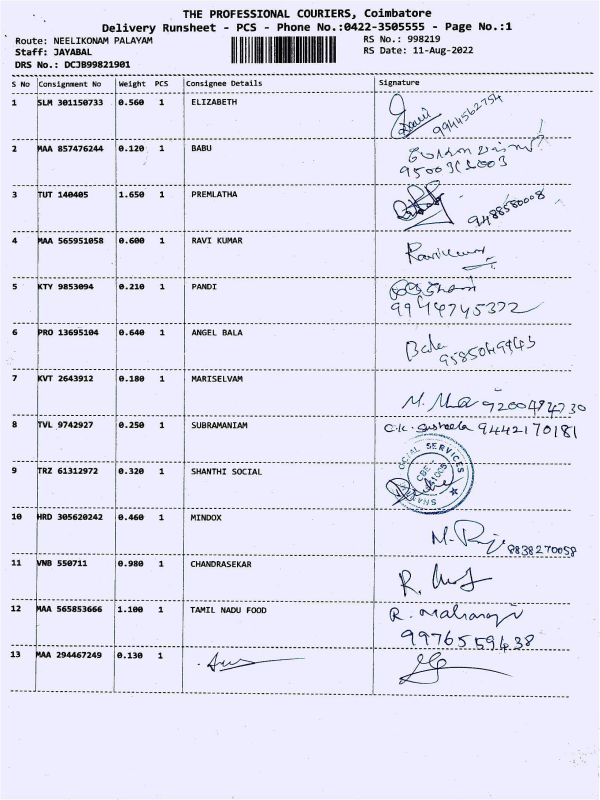 THE PROFESSIONAL COURIERS, Coimbatore
Delivery Runsheet - PCS - Phone No.:0422-3505555 - Page No.:1
Route: NEELIKONAM PALAYAM RS No.: 998219
Staff: JAYABAL RS Date: 11-Aug-2022
DRS No.: DCJB99821901
S No Consignment No Weight PCS Consignee Details Signature
1 SLM 301150733 0.560 1 ELIZABETH
9944562754
2 MAA 857476244 0.120 1 BABU
3 TUT 140405 1.650 1 PREMLATHA
9488580008
4 MAA 565951058 0.600 1 RAVI KUMAR Ravikumar
5 KTY 9853094 0.210 1 PANDI
9944745372
6 PRO 13695104 0.640 1 ANGEL BALA Bala
7 KVT 2643912 0.180 1 MARISELVAM
8 TVL 9742927 0.250 1 SUBRAMANIAM C.K. Susheela 9442170181
9 TRZ 61312972 0.320 1 SHANTHI SOCIAL SOCIAL SERVICES
10 HRD 305620242 0.460 1 MINDOX
9838270058
11 VNB 550711 0.980 1 CHANDRASEKAR
12 MAA 565853666 1.100 1 TAMIL NADU FOOD
9976559438
13 MAA 294467249 0.130 1